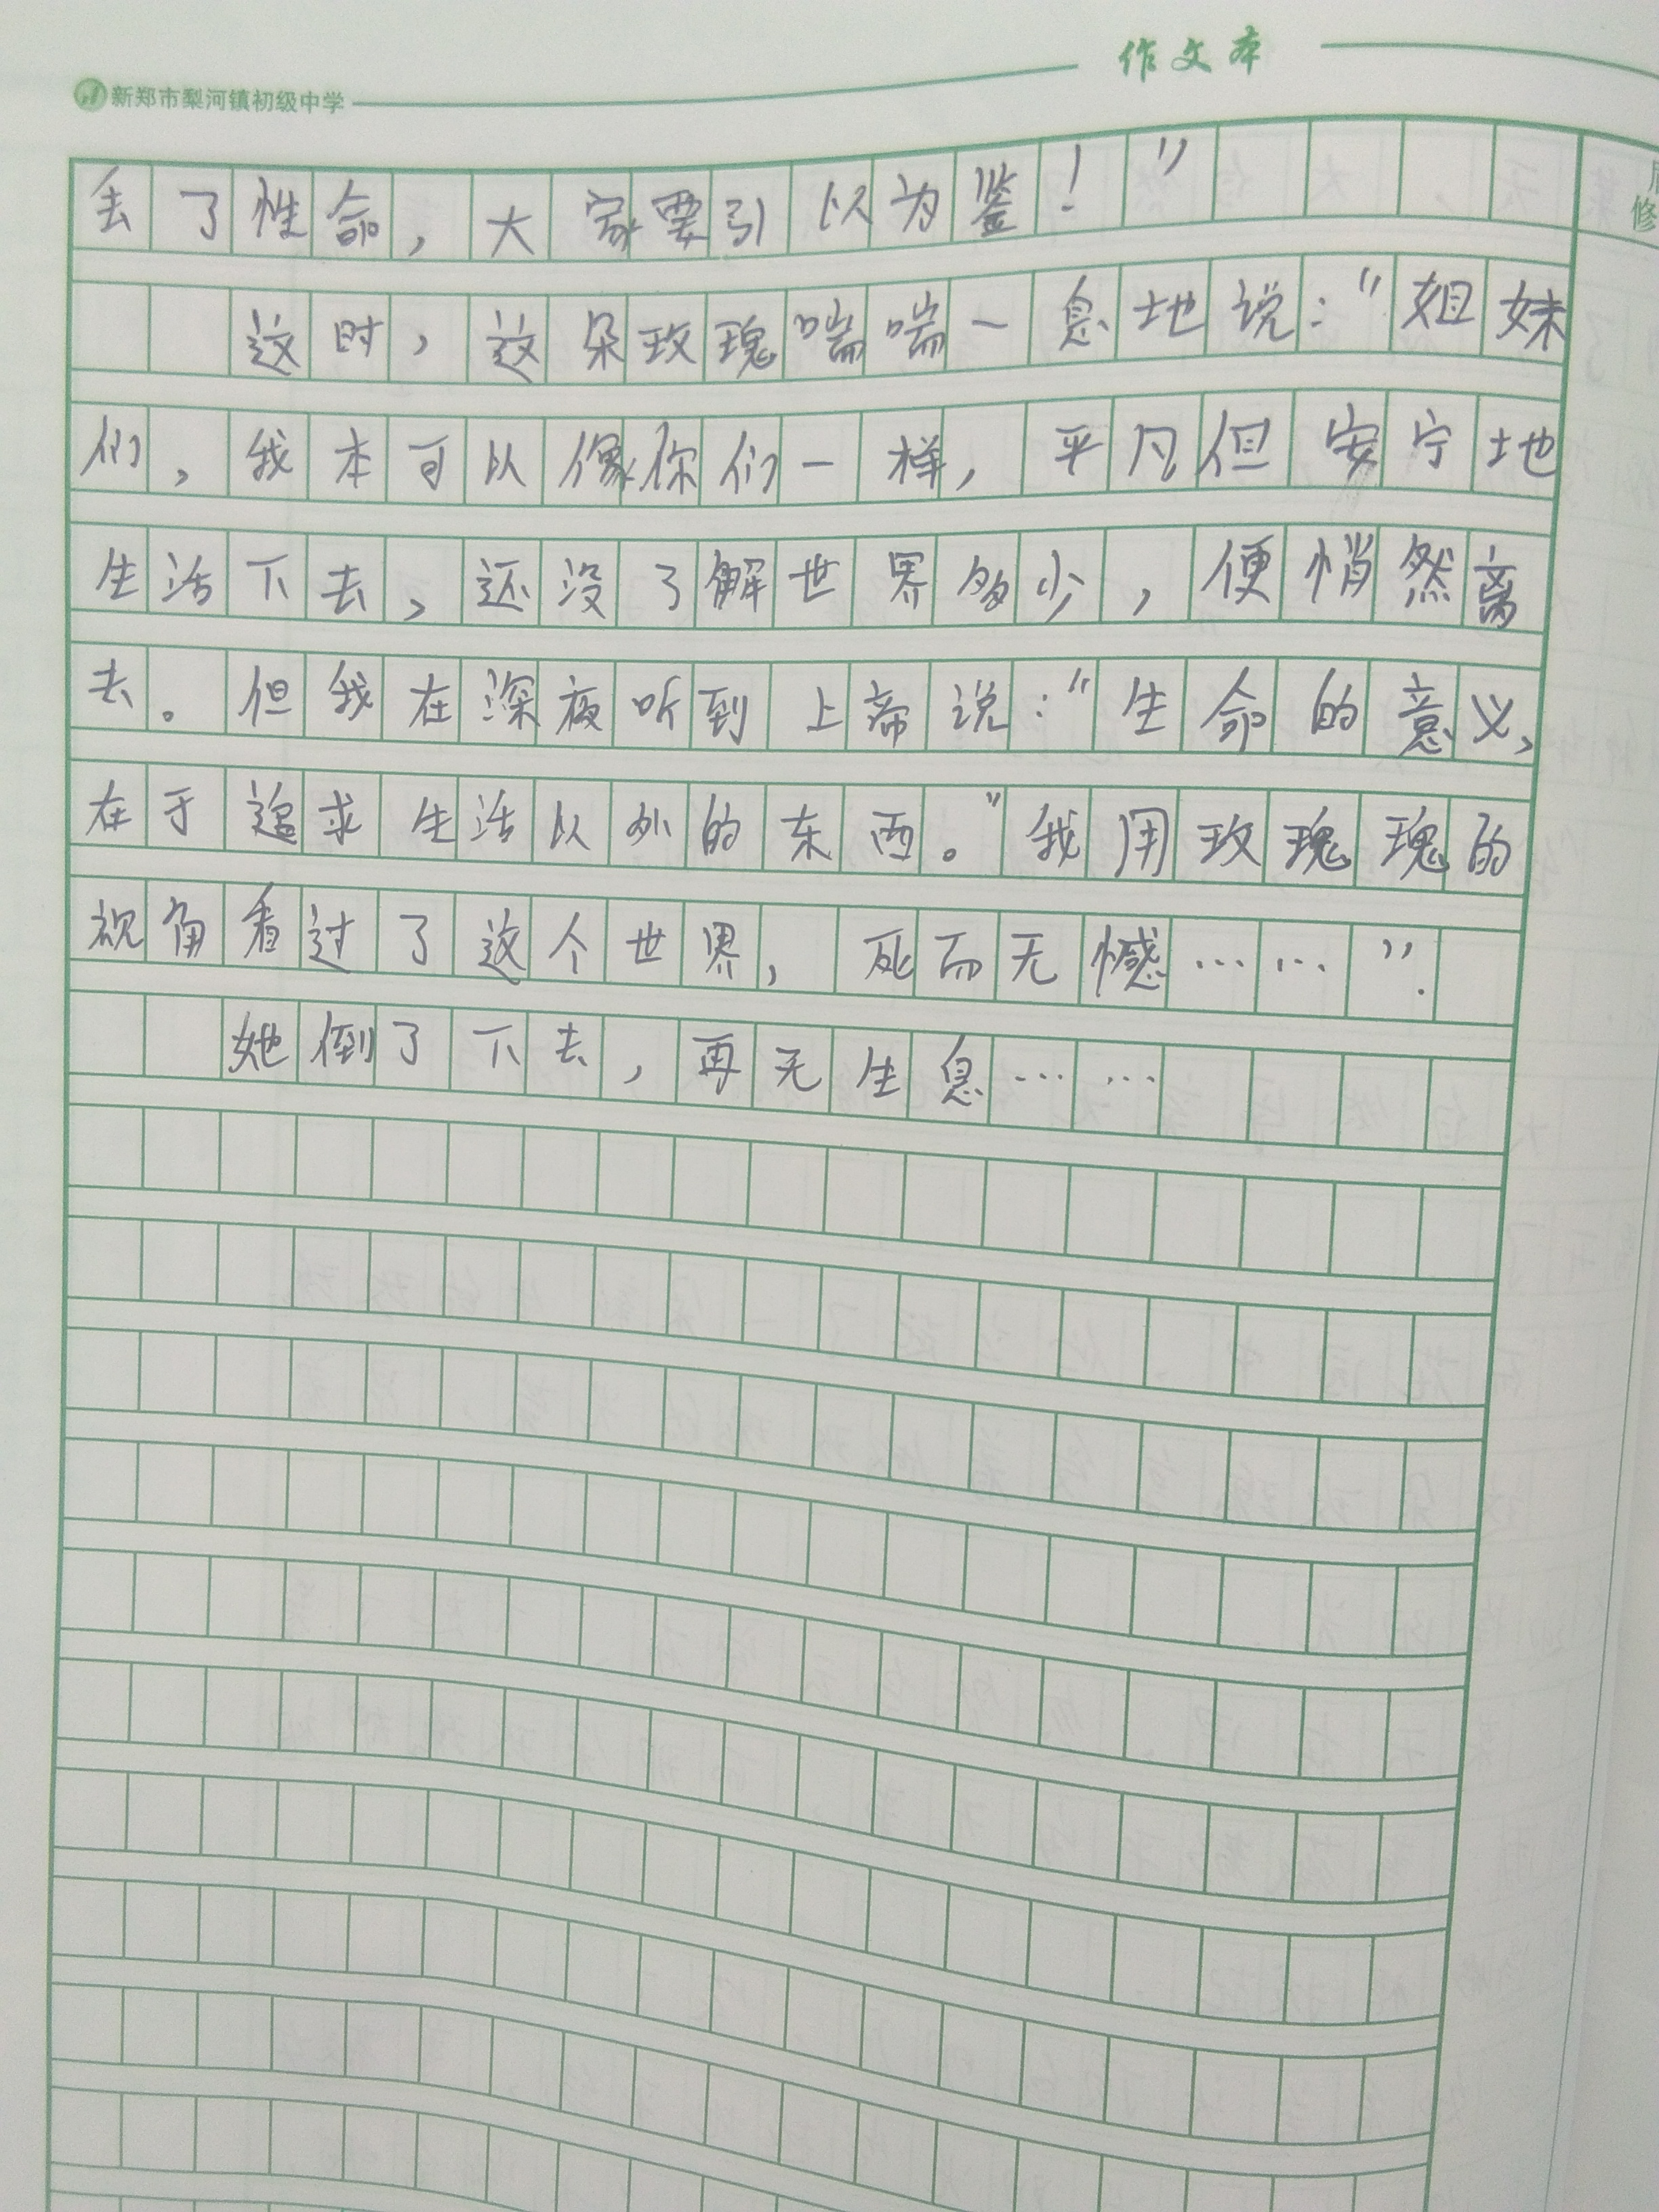 作文本
新郑市梨河镇初级中学
丢了性命，大家要引以为鉴！”
这时，这朵玫瑰喘喘一息地说：“姐妹
们，我本可以像你们一样，平凡但安宁地
生活下去，还没了解世界多少，便悄然离
去。但我在深夜听到上帝说：“生命的意义，
在于追求生活以外的东西。”我用玫瑰瑰的
视角看过了这个世界，死而无憾……”.
她倒了下去，再无生息……
修